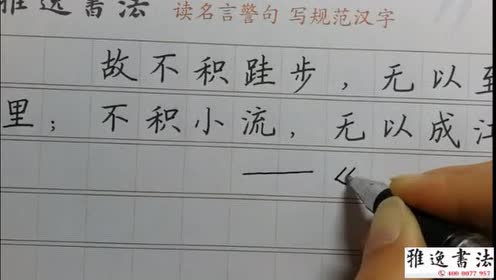 雅逸书法 读名言警句 写规范汉字
故不积跬步，无以至
里；不积小流，无以成江
——《
雅逸书法
400 0077 957